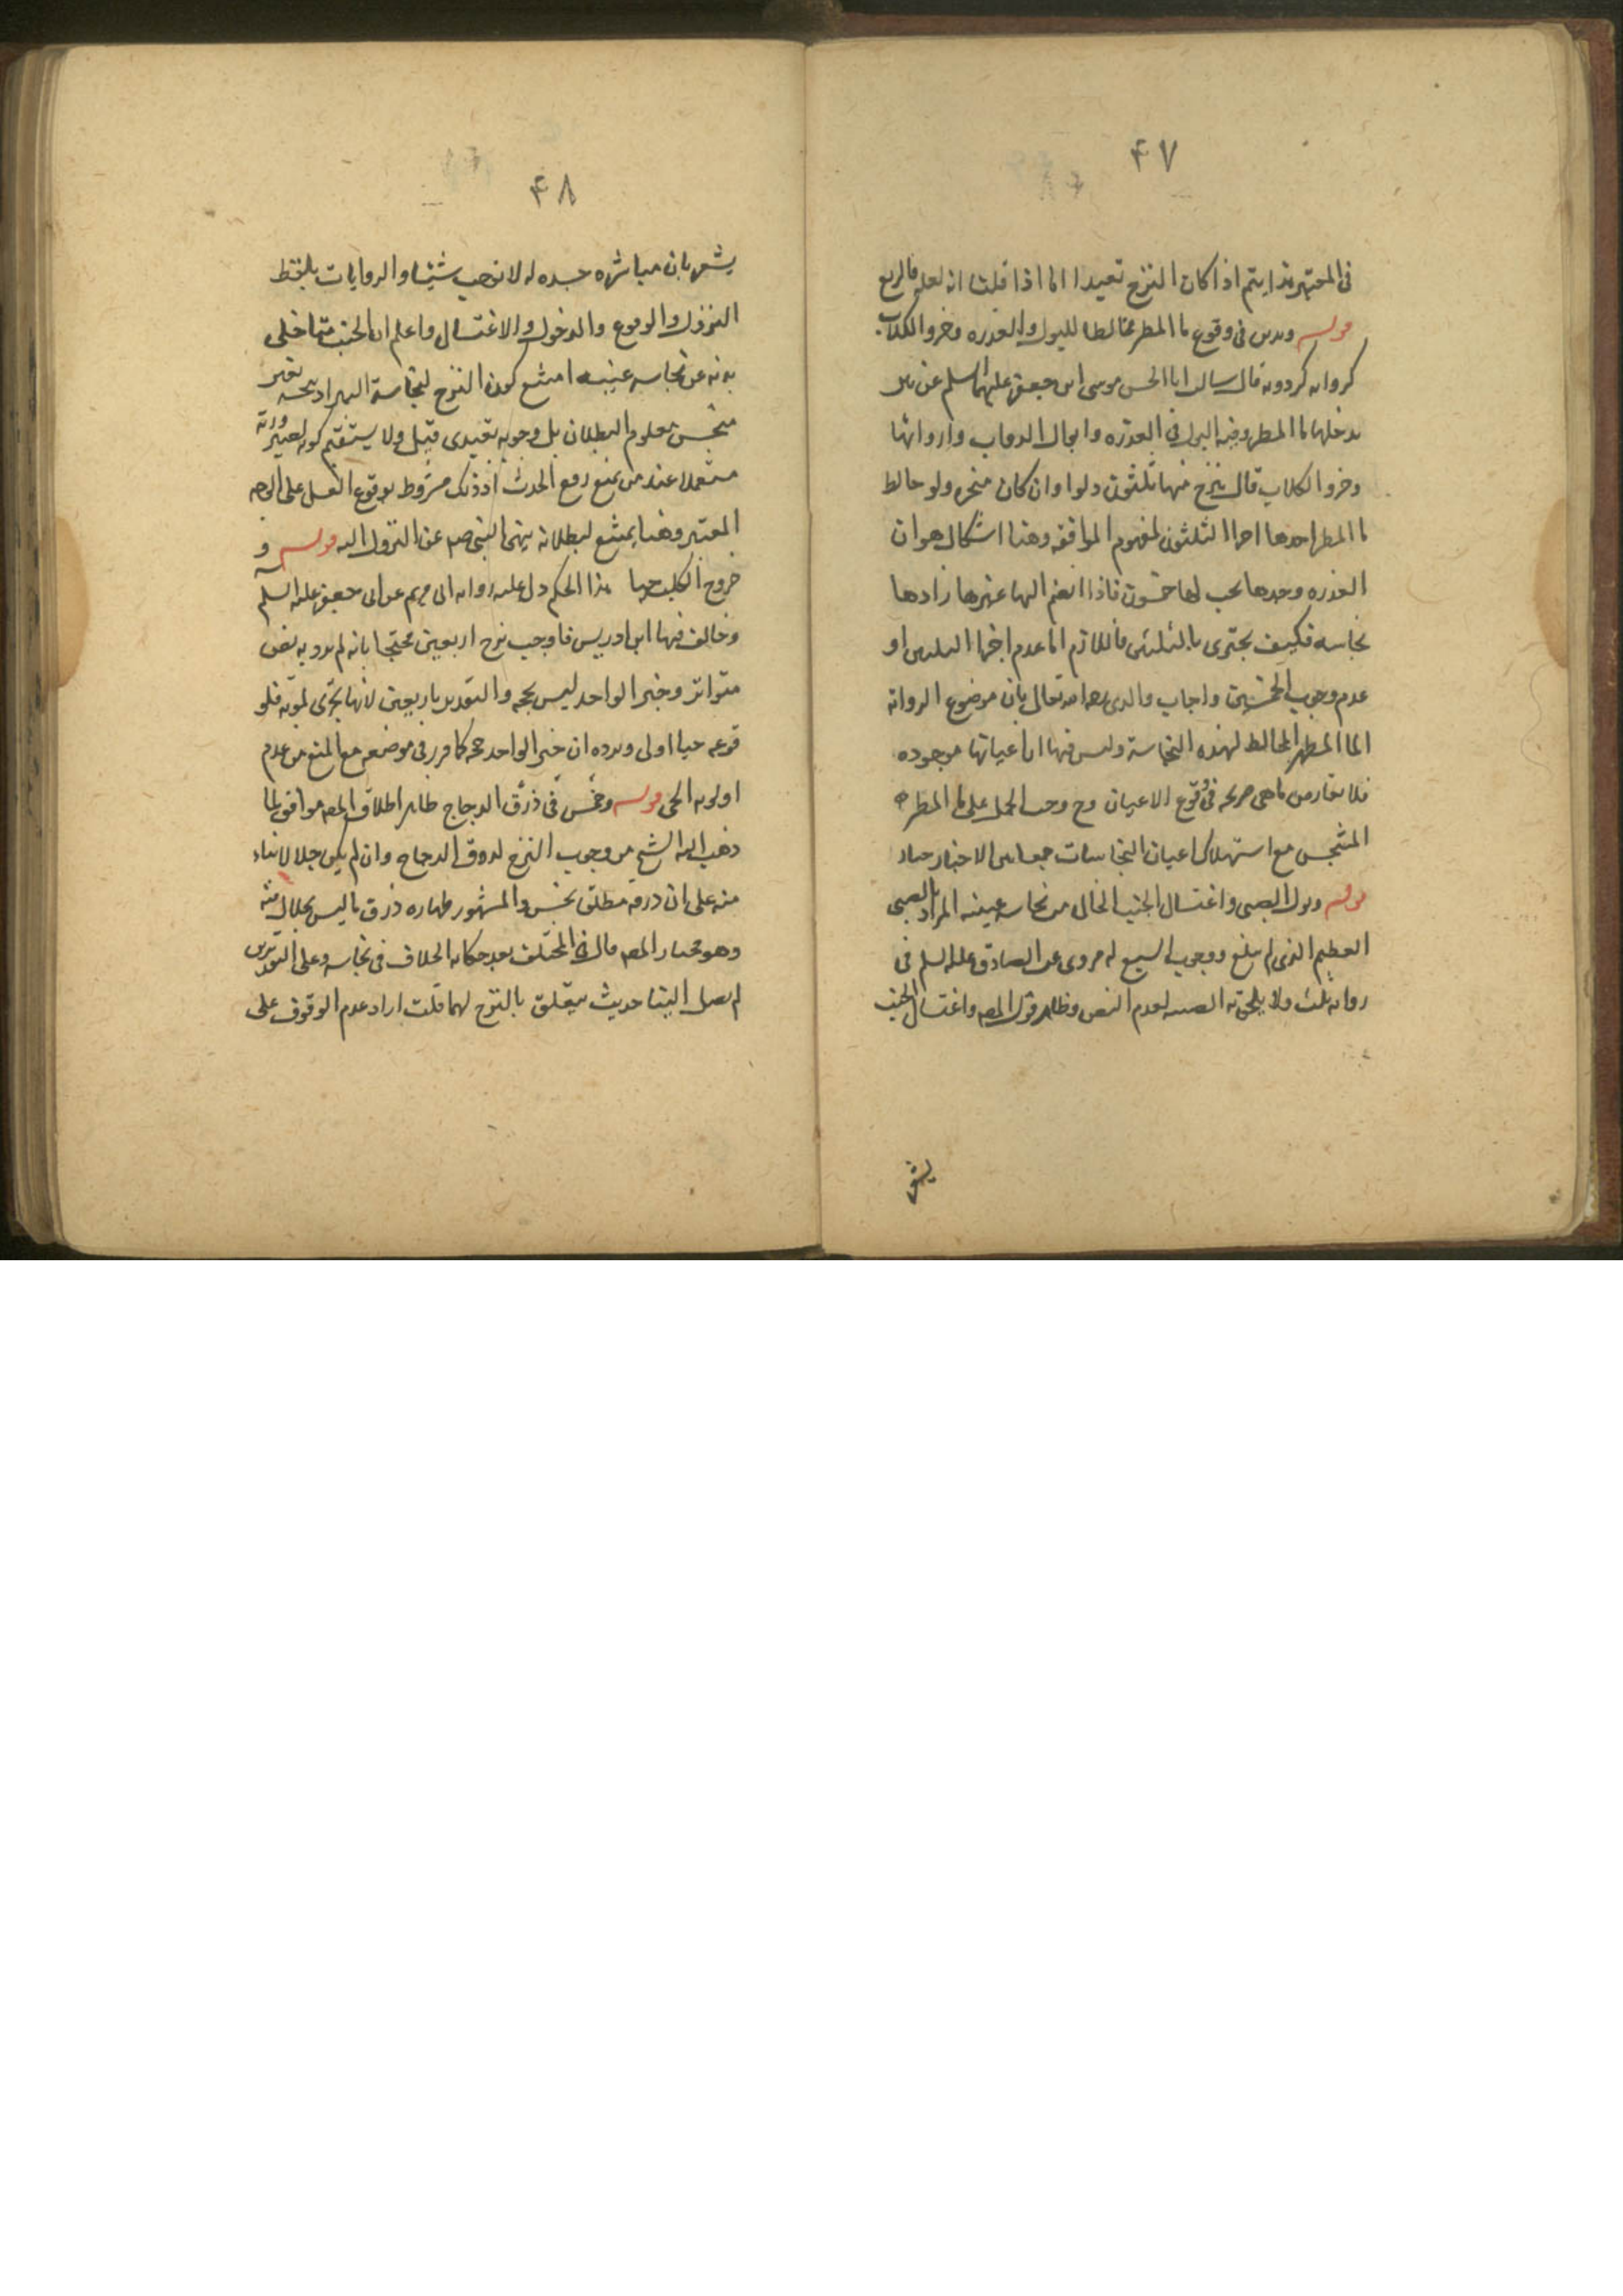 ۴۷
فى المعتبر هذا يتم اذا كان النزح تعبدا اما اذا قلنا انه لعله فالربع
قوله وثلثين فى وقوع ماء المطر مخالطا للبول والعذره وخرو الكلاب
كروايه كردويه قال سالت ابا الحسن موسى ابن جعفر عليهما السلم عن بئر
يدخلها ماء المطر وفيه البول و العذره وابوال الدواب وارواثها
وخرو الكلاب قال ينزح منها ثلثون دلوا وان كان منجره ولو خالط
ماء المطر احدها اجزا الثلثون لمفهوم الموافقه وهنا اشكال هو ان
العذره وحدها يجب لها خمسون فاذا انضم اليها غيرها زادها
نجاسه فكيف يجتزى بالثلثين فاللازم اما عدم اجزاء الثلثين او
عدم وجوب الخمسين واجاب والدى رحمه الله تعالى بان موضوع الروايه
الماء المطر المخالط لهذه النجاسة وليس فيها ان اعيانها موجوده
فلا تعارض ما هى صريحه فى وقوع الاعيان وح وجب الحمل على ماء المطر
المتنجس مع استهلاك اعيان النجاسات جمعا بين الاخبار
قوله وبول الصبى واغتسال الجنب الخالى من نجاسه عينيه المراد بالصبى
الفطيم الذى لم يبلغ ووجوب السبع له مروى عن الصادق عليه السلم فى
روايه ثلث ولا يلحق به الصبيه لعدم النص وظاهر قول المص واغتسال الجنب
يشعر
۴۸
يشعر بان مباشره جسده له لا توجب شيئا والروايات بلفظ
النزول والوقوع والدخول والاغتسال واعلم ان الجنب متى خلى
بدنه عن نجاسه عينيه امتنع كون النزح لنجاسة البئر اذ نجسه بغير
منجس معلوم البطلان بل وجوبه تعبدى قيل ولا يستقيم كونه لصيرورته
مستعملا عند من يمنع رفع الحدث اذ ذلك مشروط بوقوع الغسل على الوجه
المعتبر وهنا يمتنع لبطلانه بنهى النبى ص عن النزول اليه قوله و
خروج الكلب حيا هذا الحكم دل عليه روايه ابى مريم عن ابى جعفر عليه السلم
وخالف فيها ابن ادريس فاوجب نزح اربعين محتجا بانه لم يرد به نص
متواتر وخبر الواحد ليس بحجه والتقدير باربعين لانها تجزى لموته فلو
قوعه حيا اولى ويرده ان خبر الواحد حجه كما قرر فى موضعه مع المنع من عدم
اولويه الحى قوله وخمس فى ذرق الدجاج ظاهر اطلاق المص موافق لما
ذهب اليه الشيخ من وجوب النزح لذرق الدجاج وان لم يكن جلالا بناء
منه على ان ذرقه مطلق نجس والمشهور طهاره ذرق ما ليس بجلال منه
وهو مختار المص قال فى المختلف بعد حكايه الخلاف فى نجاسه وعلى التقديرين
لم يصل الينا حديث يتعلق بالنزح لهما قلت اراد عدم الوقوف على